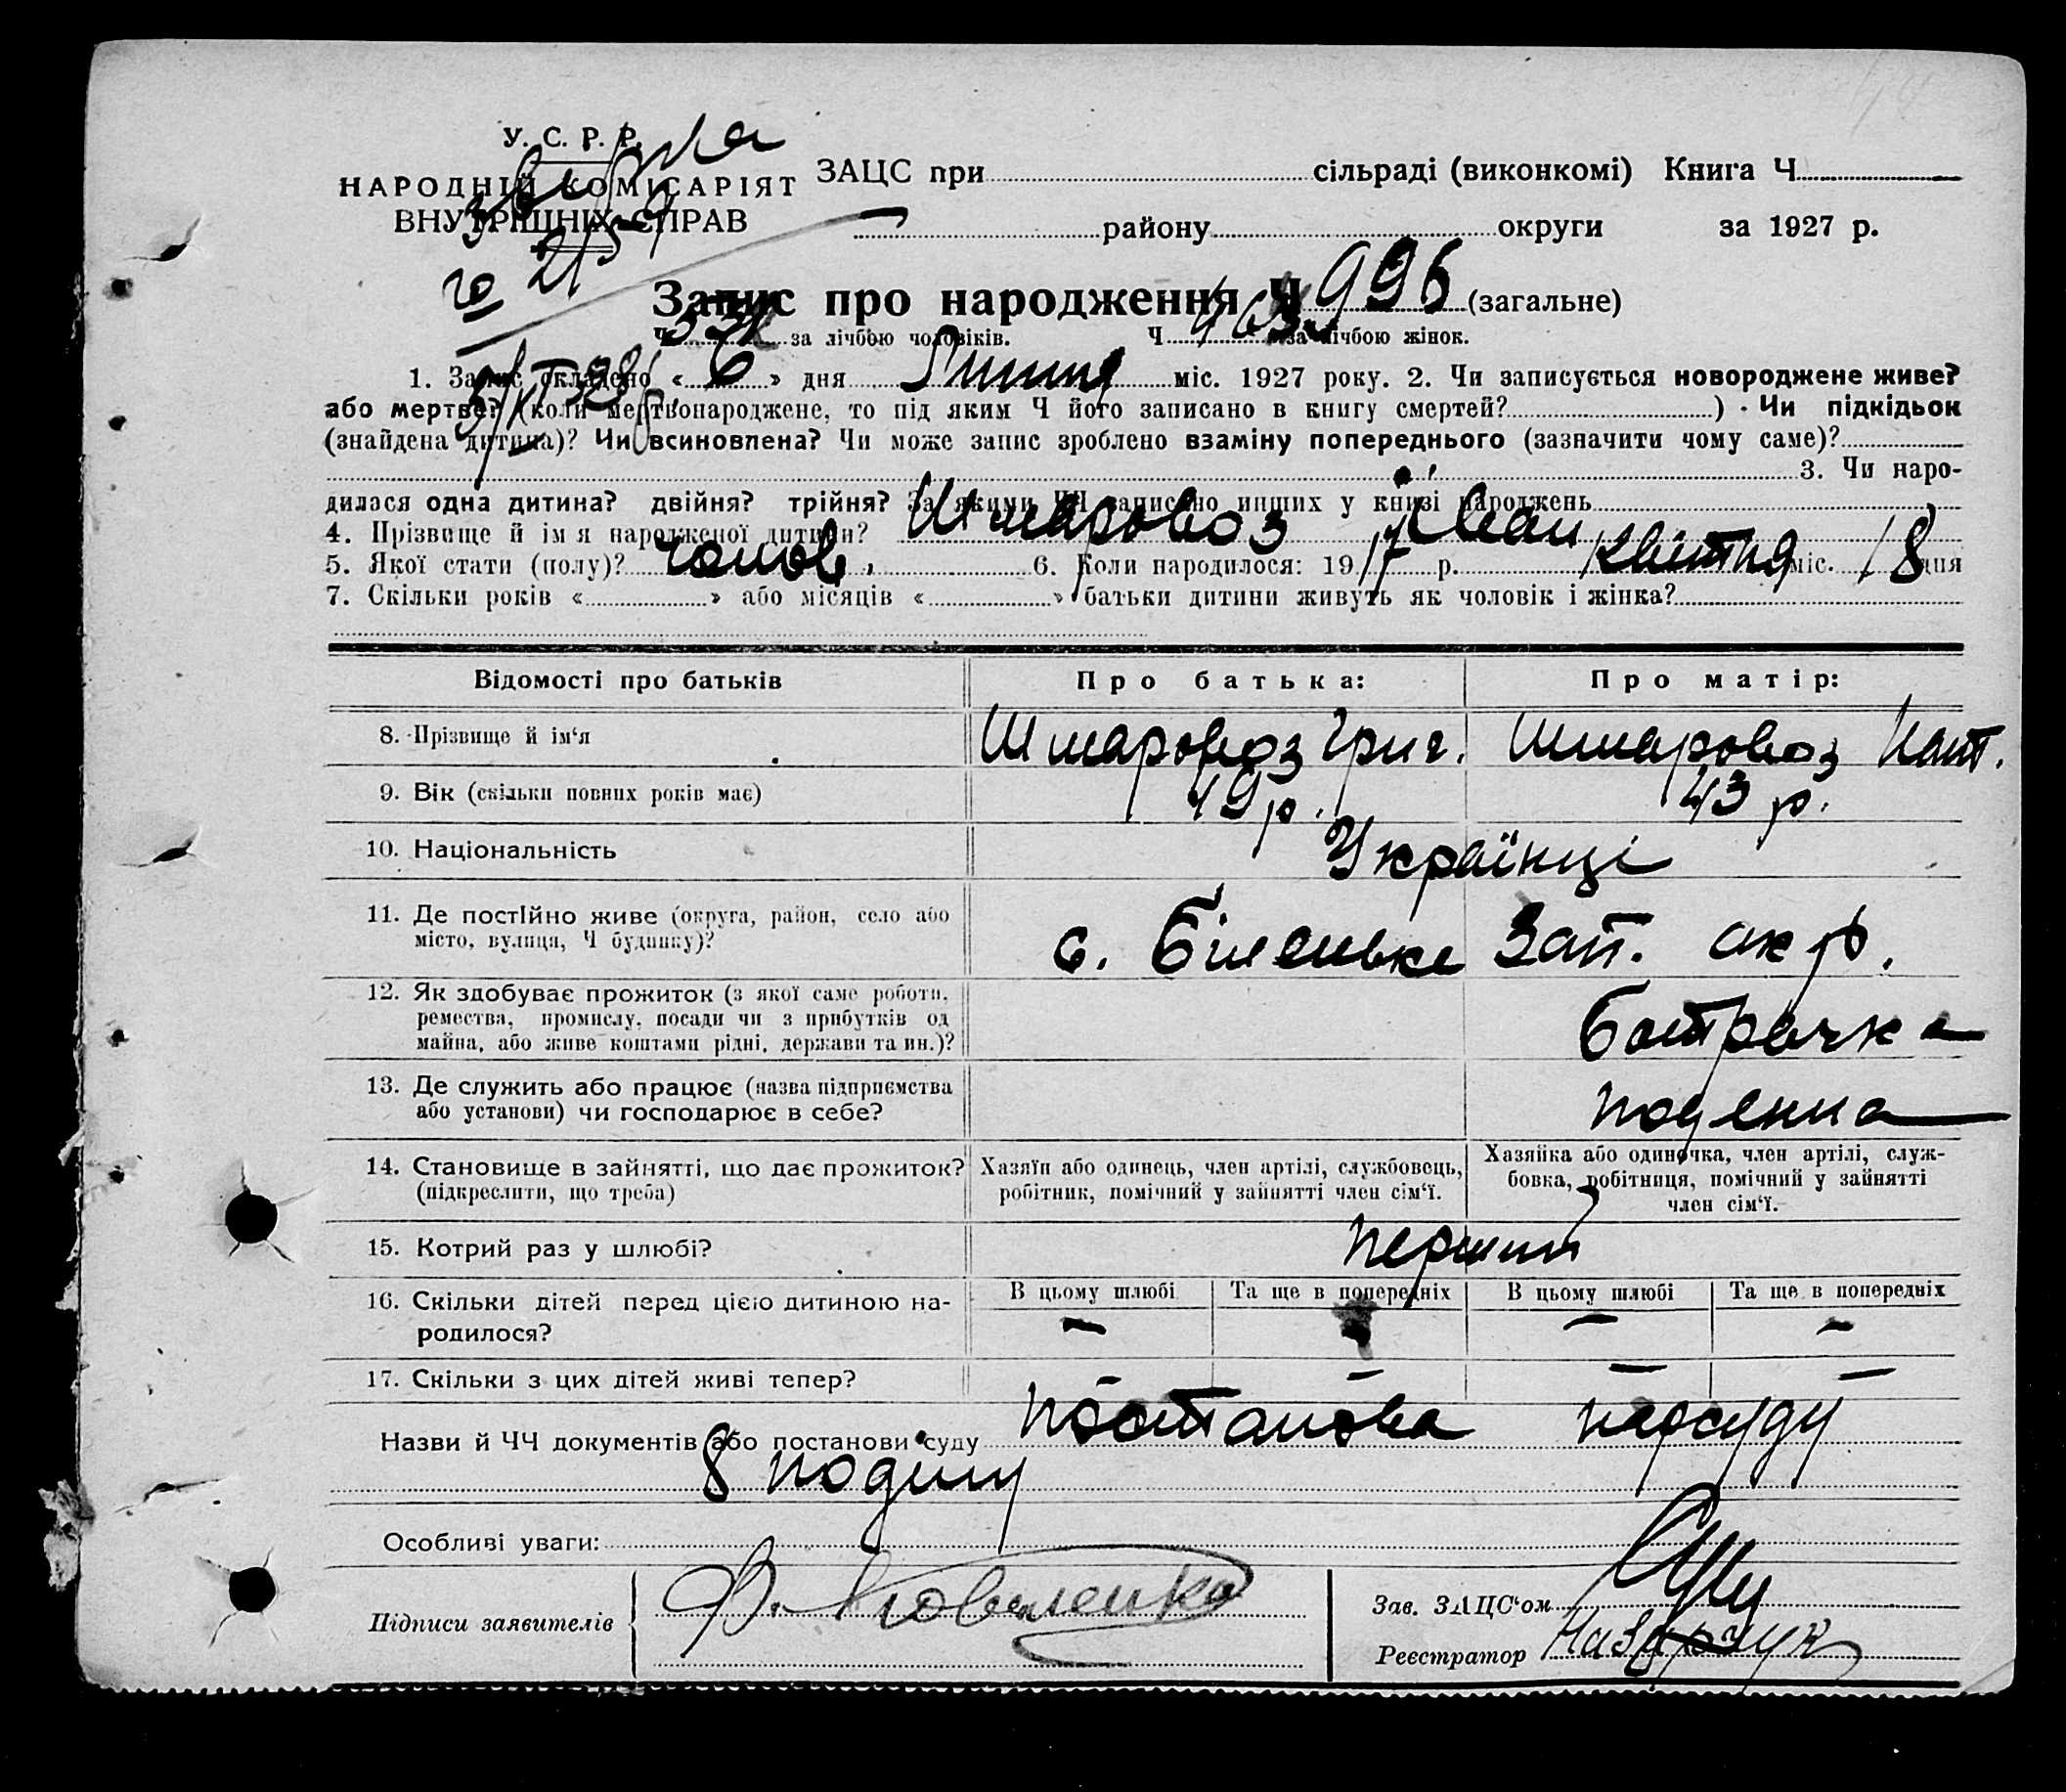 У. С. Р. Р.
НАРОДНІЙ КОМІСАРІЯТ
ВНУТРІШНІХ СПРАВ
ЗАЦС при сільраді (виконкомі) Книга Ч
району округи за 1927 р.
Запис про народження Ч 996 (загальне)
Ч за лічбою чоловіків. Ч 463 за лічбою жінок.
1. Запис складено « 6 » дня Липня міс. 1927 року. 2. Чи записується новороджене живе?
або мертве? (коли мертвонароджене, то під яким Ч його записано в книгу смертей? ) · Чи підкідьок
(знайдена дитина)? Чи всиновлена? Чи може запис зроблено взаміну попереднього (зазначити чому саме)?
3. Чи наро-
дилася одна дитина? двійня? трійня? За якими ЧЧ записано инших у книзі народжень
4. Прізвище й ім я народженої дитини? Шмаровоз Іван
5. Якої стати (полу)? чолов. 6. Коли народилося: 1917 р. Квітня міс. 18 дня
7. Скільки років « » або місяців « » батьки дитини живуть як чоловік і жінка?
Відомості про батьків Про батька: Про матір:
8. Прізвище й ім‘я Шмаровоз Григ. Шмаровоз
9. Вік (скільки повних років має) 49 р. 43 р.
10. Національність Українці
11. Де постійно живе (округа, район, село або
місто, вулиця, Ч будинку)? с. Біленьке Зап. окр.
12. Як здобуває прожиток (з якої саме роботи,
ремества, промислу, посади чи з прибутків од
майна, або живе коштами рідні, держави та ин.)? батрачка
13. Де служить або працює (назва підприємства
або установи) чи господарює в себе? поденна
14. Становище в зайнятті, що дає прожиток?
(підкреслити, що треба)
Хазяїн або одинець, член артілі, службовець,
робітник, помічний у зайнятті член сім‘ї.
Хазяйка або одиночка, член артілі, служ-
бовка, робітниця, помічний у зайнятті
член сім‘ї.
15. Котрий раз у шлюбі? перший
16. Скільки дітей перед цією дитиною на-
родилося?
В цьому шлюбі Та ще в попередніх В цьому шлюбі Та ще в попередніх
– – –
17. Скільки з цих дітей живі тепер? – – – –
Назви й ЧЧ документів або постанови суду постанова нарсуду
8 поділу
Особливі уваги:
Підписи заявителів Ф. Коваленко
Зав. ЗАЦС‘ом
Реєстратор Назарчук